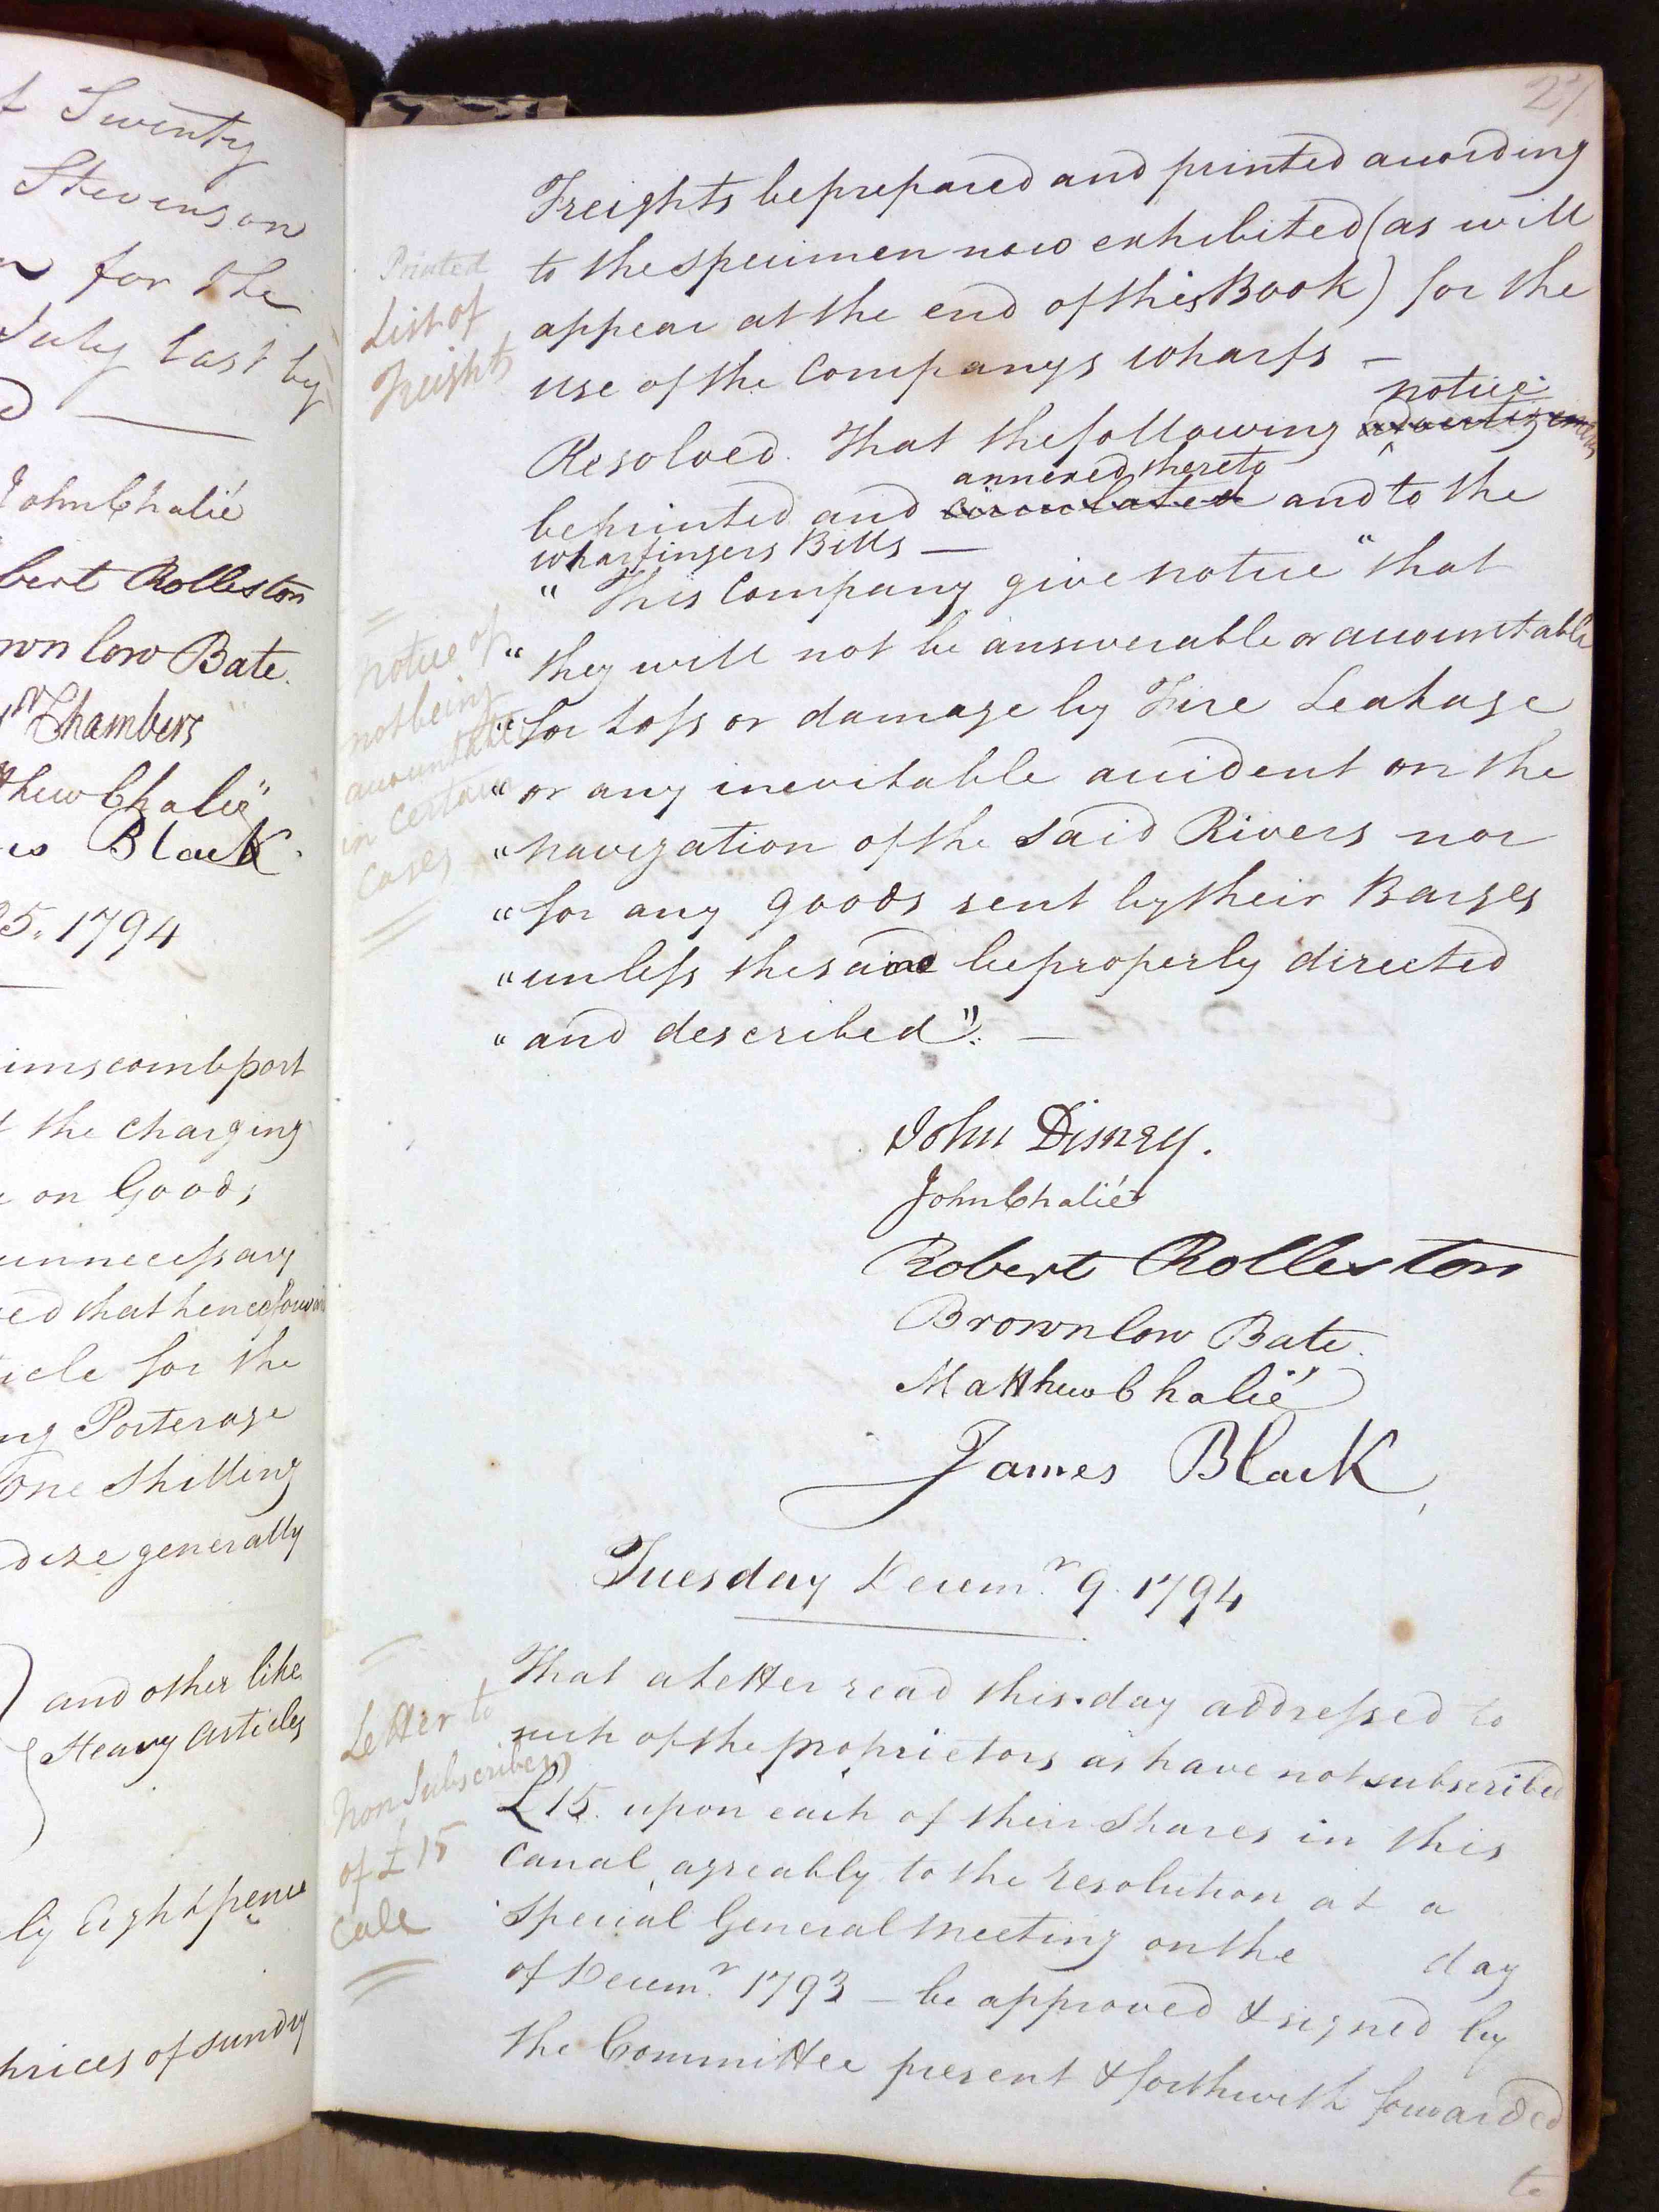 t Twenty
Stevenson
for the
July last by
John Chalié
bert Rolleston
wn low Bate.
Chambers
thew Chalié
es Black.
25. 1794
imscomb port
t the charging
on Goods
unnecessary
ed that henceforward
icle for the
ng Porterage
One Shilling
dize generally
and other like
Heavy Articles
ly Eightpence
prices of sundry
27
Freights be prepared and printed according
to the specimen now exhibited (as will
appear at the end of this Book) for the
use of the Companys Wharfs —
Printed
List of
Freights
notice
Resolved. That the following advertizement
annexed thereto
be printed and circulated and to the
wharfingers Bills —
" This Company give notice " that
" they will not be answerable or accountable
" for loss or damage by Fire Leakage
" or any inevitable accident on the
" navigation of the said Rivers nor
" for any goods sent by their Barges
" unless the said be properly directed
" and described". —
notice of
not being
accountable
in certain
cases
John Disney.
John Chalié
Robert Rolleston
Brownlow Bate.
Matthew Chalié
James Black
Tuesday Decem.r 9. 1794
That a Letter read this day addressed to
such of the proprietors as have not subscribed
£15. upon each of their Shares in this
Canal, agreably to the resolution at a
Special General Meeting on the day
of Decem.r 1793 — be approved & signed by
the Committee present & forthwith forwarded
to
Letter to
Non Subscribers
of £15
Call